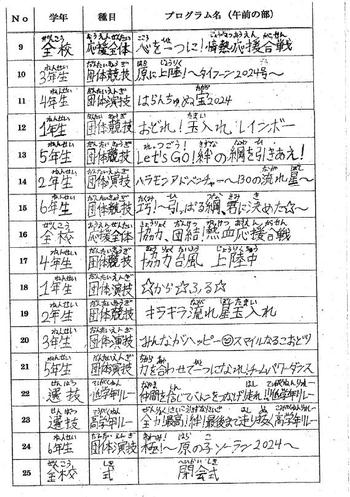 No 学年 種目 プログラム名（午前の部）
9 全校 応援全体 心を一つに！情熱応援合戦
10 3年生 団体競技 原に上陸！〜タイフーン2024号〜
11 4年生 団体演技 はらんちゅぬ宝2024
12 1年生 団体競技 おどれ！玉入れ レインボー
13 5年生 団体競技 Let's Go！絆の綱を引きあえ！
14 2年生 団体演技 ハラモンアドベンチャー〜130の流れ星〜
15 6年生 団体競技 引っぱる綱、君に決めた☆〜
16 全校 応援全体 協力、団結！熱血応援合戦
17 4年生 団体競技 協力台風 上陸中
18 1年生 団体演技 ☆から☆ふる☆
19 2年生 団体競技 キラキラ流れ星玉入れ
20 3年生 団体演技 みんながハッピー スマイルなるこおどり
21 5年生 団体演技 力を合わせてつになれ！チームパワーダンス
22 選抜 低学年リレー 仲間を信じてバトンをつなげ 走れ！！低学年リレー
23 選抜 高学年リレー 全力！最高！絆！最後まで走りぬけ 高学年リレー
24 6年生 団体演技 極！〜原の子ソーラン2024〜
25 全校 式 閉会式